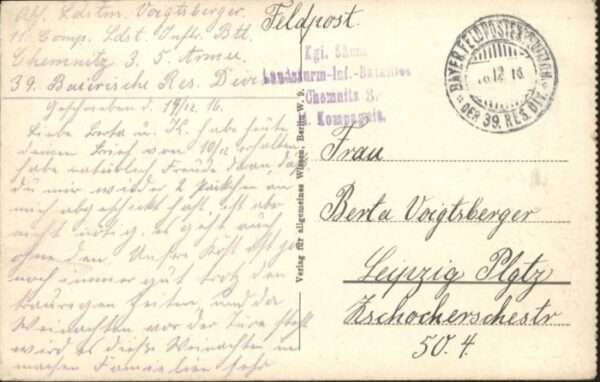 Abs. Ldstm. Voigtsberger.
11. Comp. Ldst. Inft. Btl.
Chemnitz 3. 5. Armee
39. Baierische Res. Div.
Feldpost.
Kgl. Sächs.
Landsturm-Inf.-Bataillon
Chemnitz 3.
Kompagnie.
BAYER. FELDPOSTEXPEDITION
12 16
DER 39. RES. DIV.
Geschrieben d. 19/12. 16.
Liebe Berta u. K. habe heute
deinen Brief von 10/12 erhalten
habe natürlich Freude daran, daß
du mir wieder 2 Päckchen an
mich abgeschickt hast, ist aber
nicht nötig, es geht auch
ohne den Unsre Kost ist ja
noch immer gut trotz den
traurigen Zeiten und da
Weinachten vor der Türe steht
wird es dieses Weinachten
machen Familien sehr
Verlag für allgemeines Wissen, Berlin W. 9.
Frau
Berta Voigtsberger
Leipzig Plgtz
Zschocherschestr
50. 4.